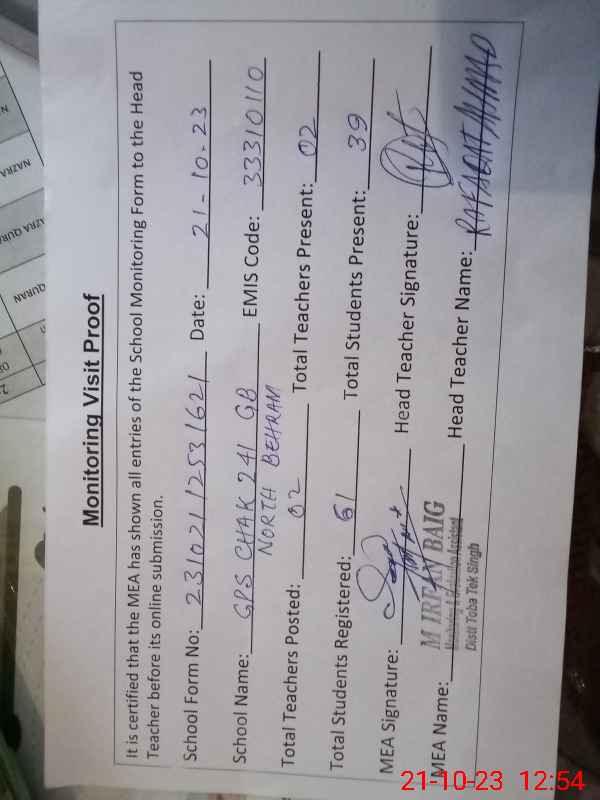 Monitoring Visit Proof
It is certified that the MEA has shown all entries of the School Monitoring Form to the Head
Teacher before its online submission.
School Form No: 23102112531621 Date: 21-10-23
School Name: GPS CHAK 241 GB EMIS Code: 33310110
NORTH BEHRAM
Total Teachers Posted: 02 Total Teachers Present: 02
Total Students Registered: 61 Total Students Present: 39
MEA Signature: Head Teacher Signature:
MEA Name: M IRFAN BAIG Head Teacher Name: AHMAD
Monitoring & Evaluation Assistant
Distt Toba Tek Singh
NAZRA
QURAN
21-10-23 12:54